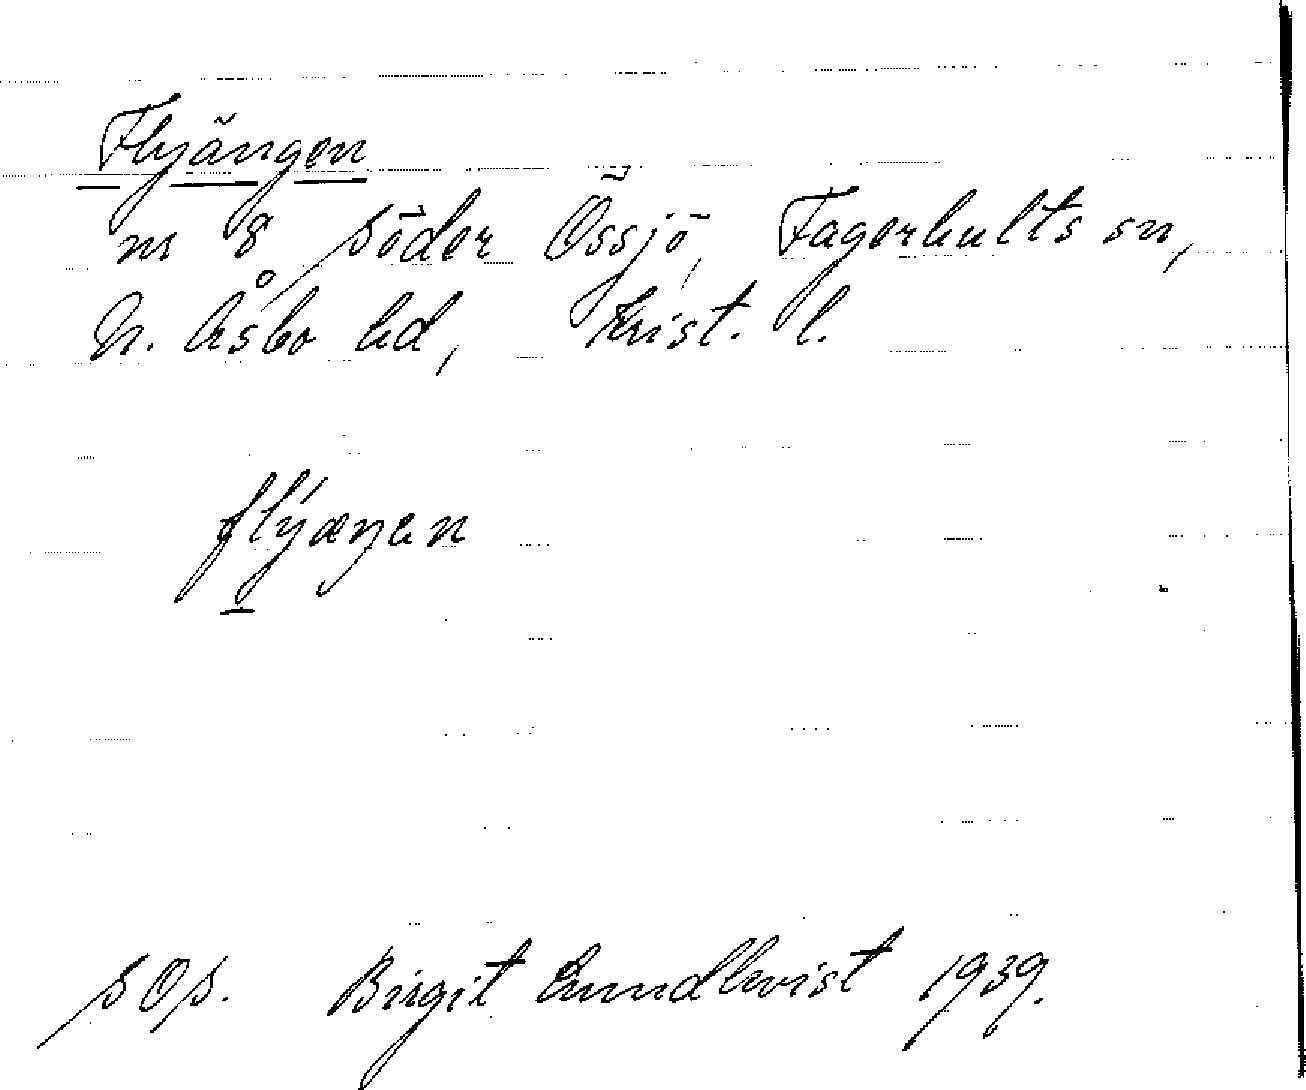 Flyängen
nr 8 Söder Össjö, Fagerhults sn,
N. Åsbo hd, Krist. l.
flýæŋen
SOS. Birgit Lundkvist 1939.